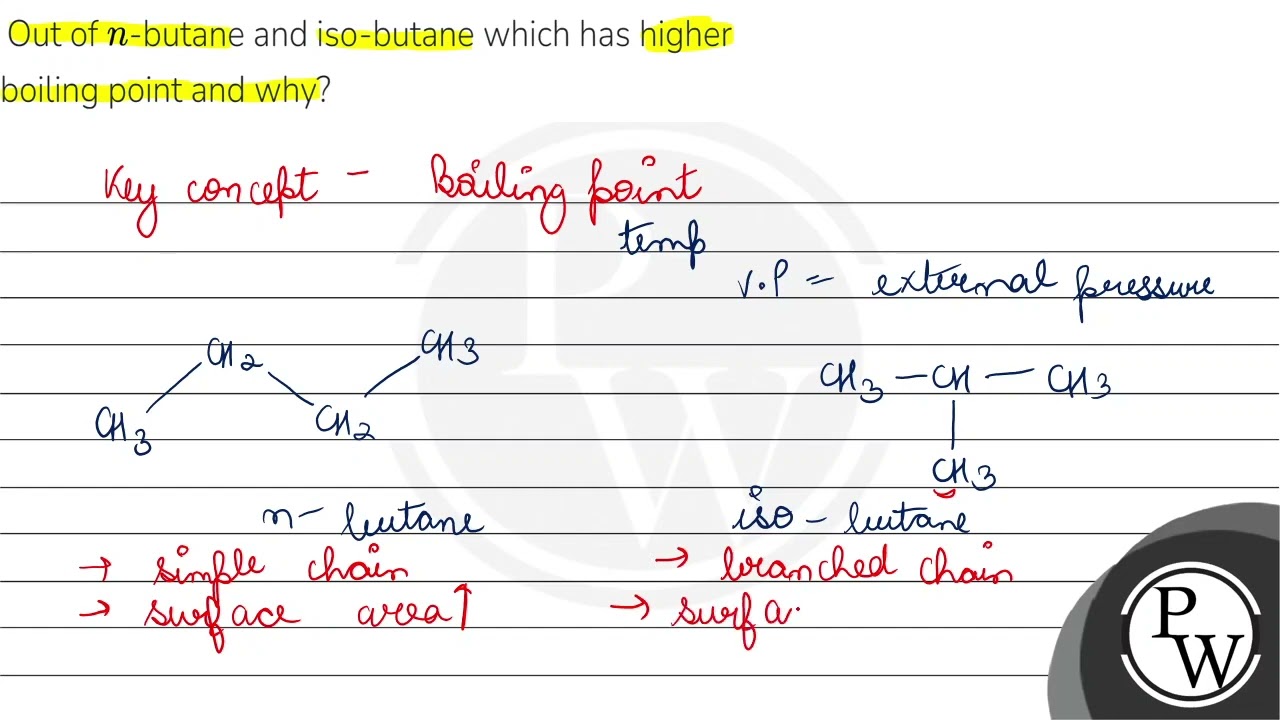 Out of n-butane and iso-butane which has higher
boiling point and why?
Key concept - Boiling point
temp
V.P = external pressure
CH2 CH3
CH3 CH2
CH3 - CH - CH3
CH3
n- butane
iso - butane
→ simple chain
→ surface area ↑
→ branched chain
→ surfa
P
W